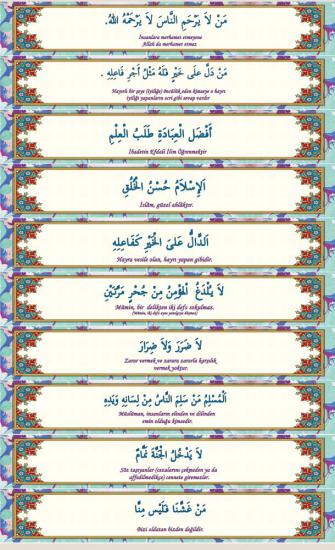 مَنْ لاَ يَرْحَمِ النَّاسَ لاَ يَرْحَمْهُ اللهُ.
İnsanlara merhamet etmeyene
Allah da merhamet etmez
مَنْ دَلَّ عَلَى خَيْرٍ فَلَهُ مِثْلُ أَجْرِ فَاعِلِهِ .
Hayırlı bir şeye (iyiliğe) öncülük eden kimseye o hayrı
iyiliği yapanların ecri gibi sevap vardır
أَفْضَلُ الْعِبَادَةِ طَلَبُ الْعِلْمِ
İbadetin Efdali İlim Öğrenmektir
اَلْإِسْلاَمُ حُسْنُ الْخُلُقِ
İslâm, güzel ahlâktır.
اَلدَّالُّ عَلَى الْخَيْرِ كَفَاعِلِهِ
Hayra vesile olan, hayrı yapan gibidir.
لاَ يُلْدَغُ الْمُؤْمِنُ مِنْ جُحْرٍ مَرَّتَيْنِ
Mümin, bir delikten iki defa sokulmaz.
(Mümin, iki defa aynı yanılgıya düşmez)
لاَ ضَرَرَ وَلاَ ضِرَارَ
Zarar vermek ve zarara zararla karşılık
vermek yoktur.
اَلْمُسْلِمُ مَنْ سَلِمَ النَّاسُ مِنْ لِسَانِهِ وَيَدِهِ
Müslüman, insanların elinden ve dilinden
emin olduğu kimsedir.
لاَ يَدْخُلُ الْجَنَّةَ نَمَّامٌ
Söz taşıyanlar (cezalarını çekmeden ya da
affedilmedikçe) cennete giremezler.
مَنْ غَشَّنَا فَلَيْسَ مِنَّا
Bizi aldatan bizden değildir.